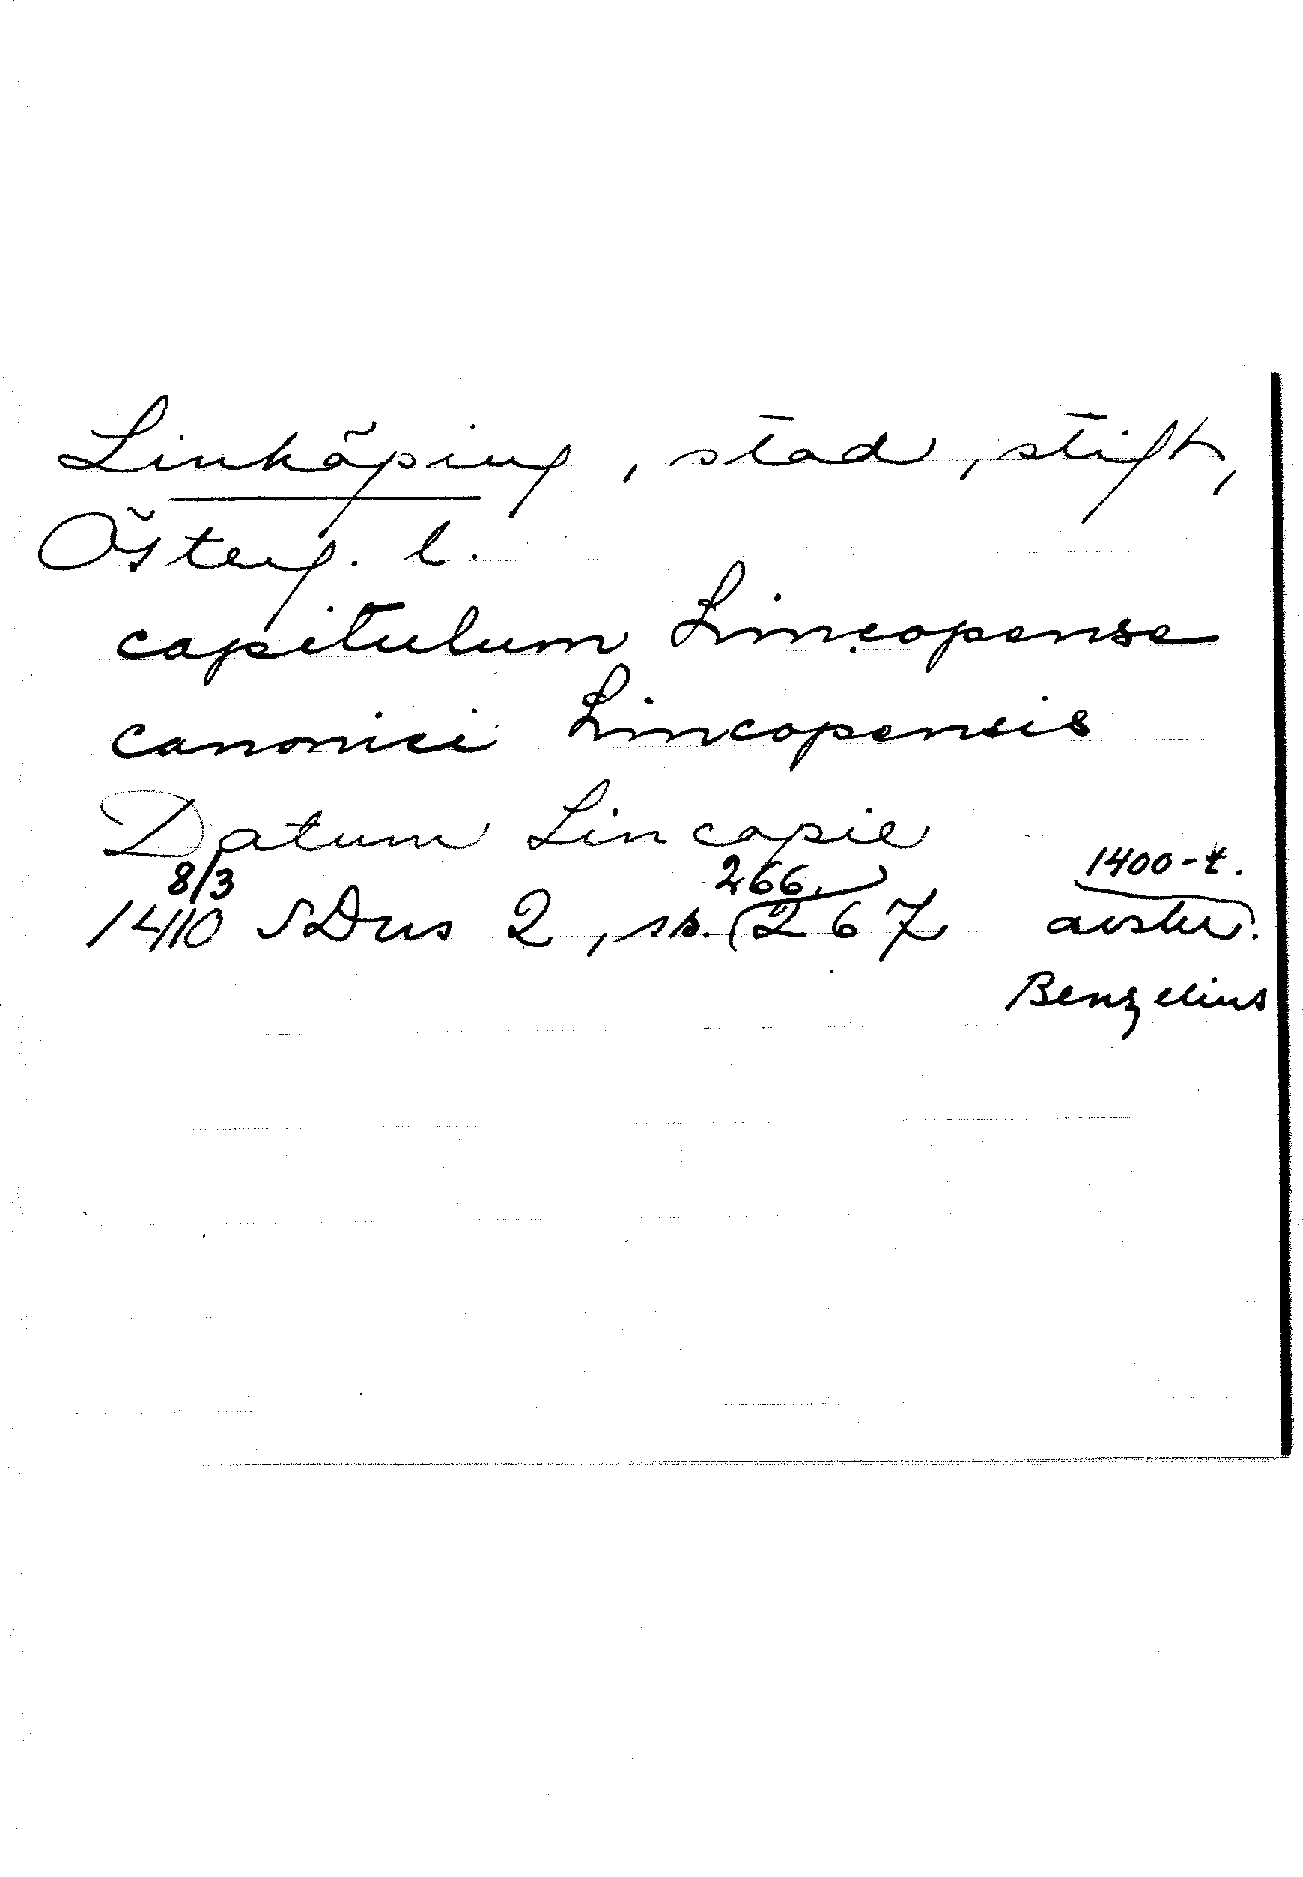 Linköping, stad, stift,
Österg. l.
capitulum Lincopense
canonici Lincopensis
Datum Lincopie
8/3 266. 1400-t.
1410 SDns 2, s. (267 avskr.
Benzelius